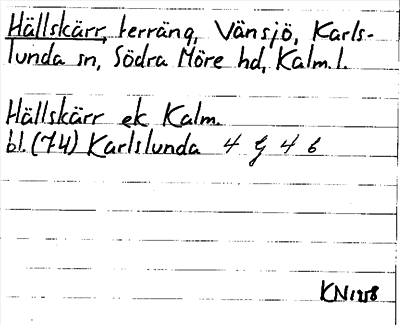 Hällskärr, terräng, Vänsjö, Karls-
lunda sn, Södra Möre hd, Kalm. l.
Hällskärr ek Kalm.
bl. (74) Karlslunda 4 G 4 b
KN1258